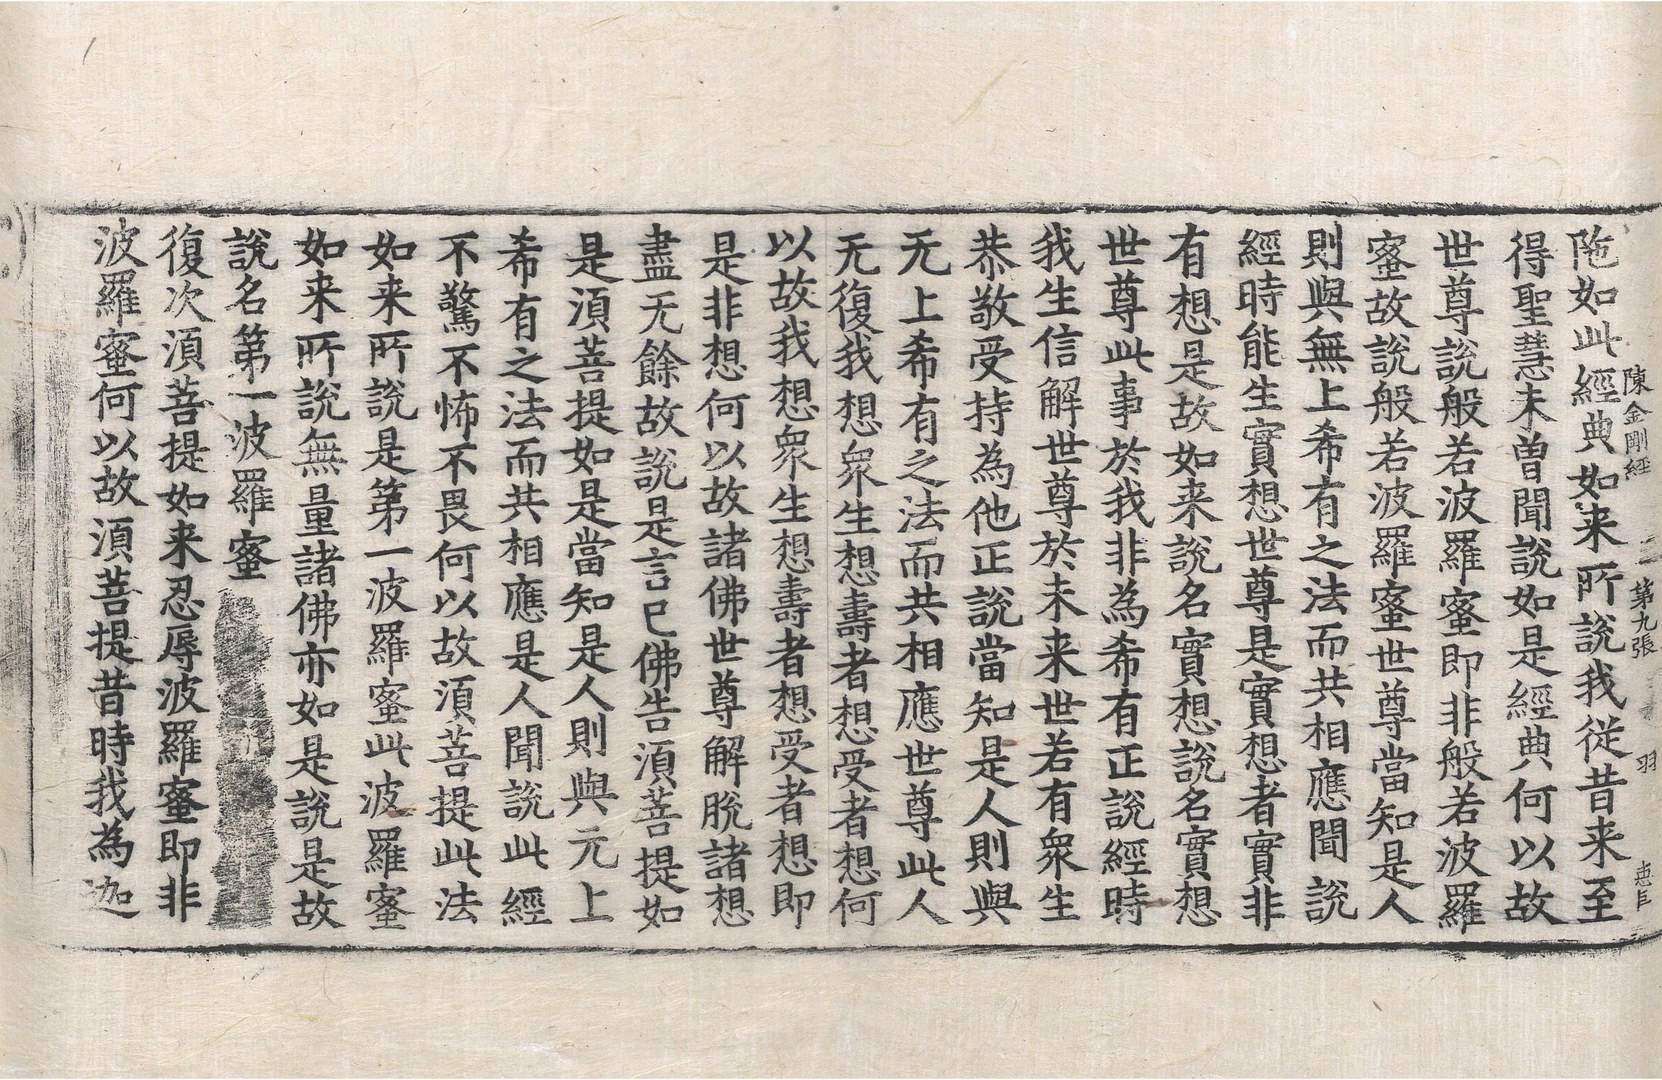 陳金剛經 第九張 羽
陁如此經典如来所說我從昔来至
得聖慧未曽聞說如是經典何以故
世尊說般若波羅蜜即非般若波羅
蜜故說般若波羅蜜世尊當知是人
則與無上希有之法而共相應聞說
經時能生實想世尊是實想者實非
有想是故如来說名實想說名實想
世尊此事於我非為希有正說經時
我生信解世尊於未来世若有衆生
恭敬受持為他正說當知是人則與
无上希有之法而共相應世尊此人
无復我想衆生想壽者想受者想何
以故我想衆生想壽者想受者想即
是非想何以故諸佛世尊解脫諸想
盡无餘故說是言已佛告湏菩提如
是湏菩提如是當知是人則與无上
希有之法而共相應是人聞說此經
不驚不怖不畏何以故湏菩提此法
如来所說是第一波羅蜜此波羅蜜
如来所說無量諸佛亦如是說是故
說名第一波羅蜜
復次湏菩提如来忍辱波羅蜜即非
波羅蜜何以故湏菩提昔時我為迦